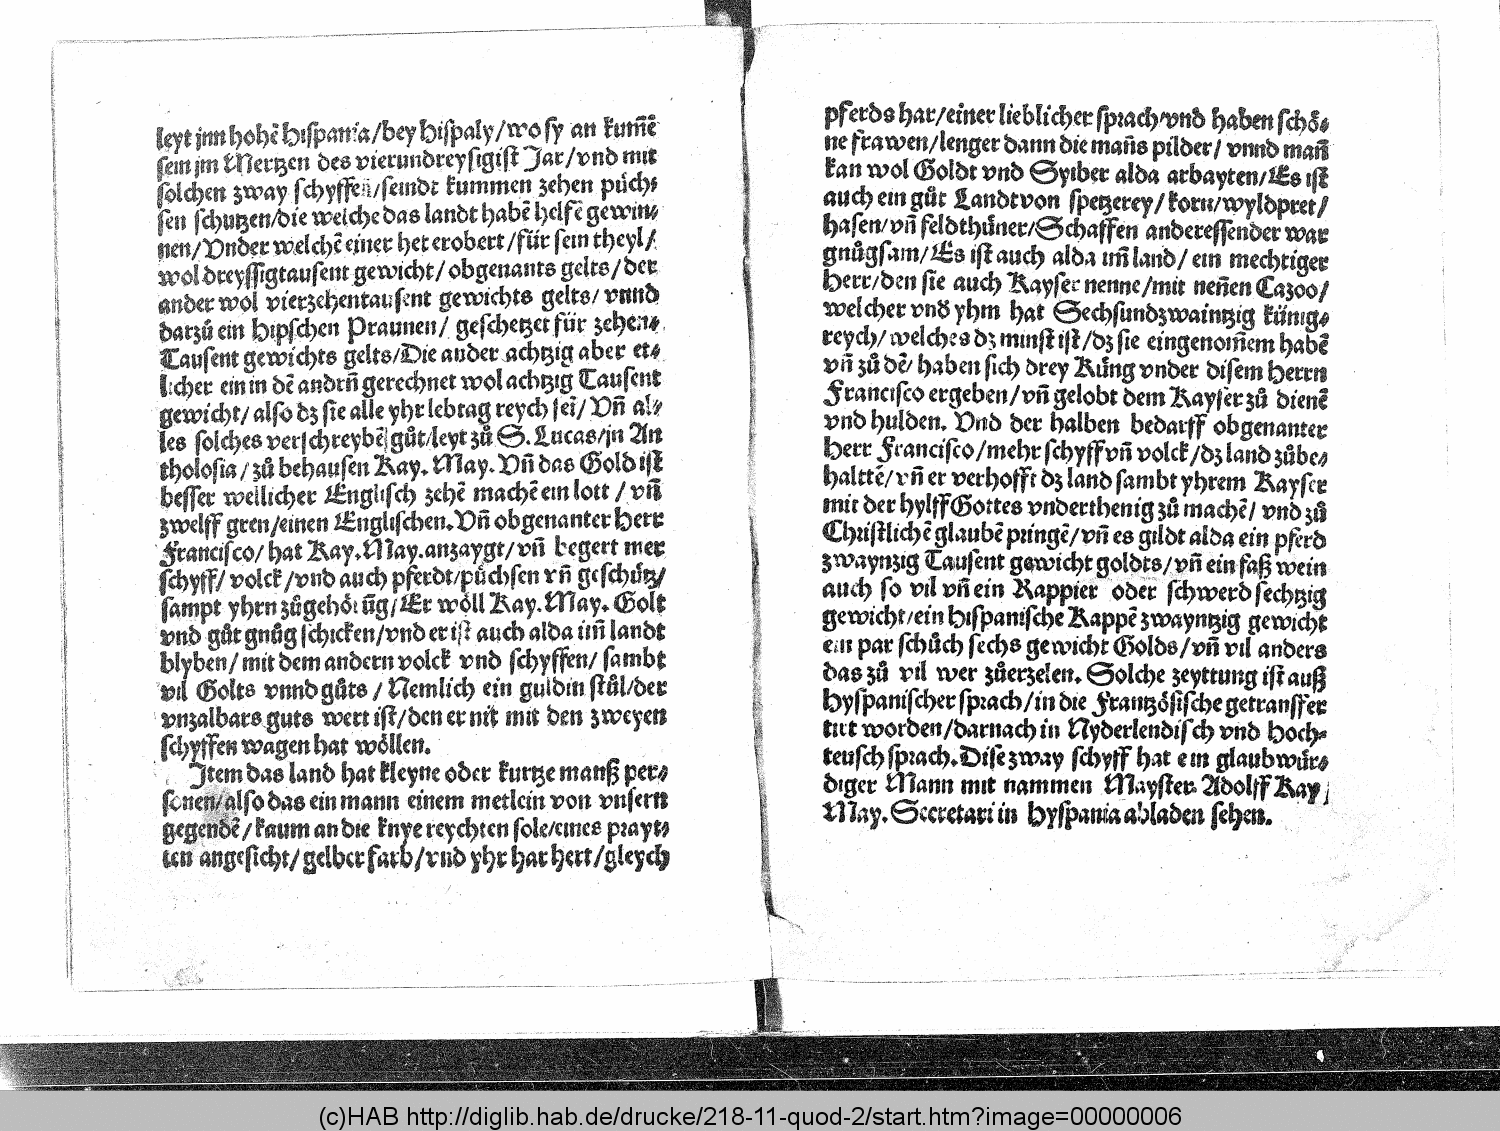 leyt jnn hohẽ Hispania/bey Hispaly/wo sy an kum̃ẽ
sein jm Mertzen des vierundreysigist Jar/vnd mit
solchen zway schyffen/seindt kummen zehen püch⸗
sen schutzen/die welche das landt habẽ helfẽ gewin⸗
nen/Vnder welchẽ einer het erobert/für sein theyl/
wol dreyssigtausent gewicht/obgenants gelts/der
ander wol vierzehentausent gewichts gelts/vnnd
darzů ein hipschen Praunen/ geschetzet für zehen⸗
Tausent gewichts gelts/Die ander achtzig aber et⸗
licher ein in dẽ andrñ gerechnet wol achtzig Tausent
gewicht/also dz sie alle yhr lebtag reych seĩ/Vñ al⸗
les solches verschreybẽ gůt/leyt zů S.Lucas/jn An
tholosia/zů behausen Kay.May.Vñ das Gold ist
besser wellicher Englisch zehẽ machẽ ein lott/vñ
zwelff gren/einen Englischen.Vñ obgenanter Herr
Francisco/hat Kay.May.anzaygt/vñ begert mer
schyff/volck/vnd auch pferdt/püchsen vñ geschütz/
sampt yhrn zůgehörũg/Er wöll Kay.May.Golt
vnd gůt gnůg schicken/vnd er ist auch alda im̃ landt
blyben/mit dem andern volck vnd schyffen/sambt
vil Golts vnnd gůts/Nemlich ein guldin stůl/der
vnzalbars guts wert ist/den er nit mit den zweyen
schyffen wagen hat wöllen.
Item das land hat kleyne oder kurtze manß per⸗
sonen/also das ein mann einem metlein von vnsern
gegendẽ/kaum an die knye reychten sole/eines prayt⸗
ten angesicht/gelber farb/vnd yhr har hert/gleych
pferds har/einer lieblicher sprach/vnd haben schö⸗
ne frawen/lenger dann die mañs pilder/vnnd mañ
kan wol Goldt vnd Sylber alda arbayten/Es ist
auch ein gůt Landt von spetzerey/korn/wyldpret/
hasen/vñ feldthüner/Schaffen ander essender war
gnůgsam/Es ist auch alda im̃ land/ein mechtiger
Herr/den sie auch Kayser nenne/mit neñen Cazoo/
welcher vnd yhm hat Sechsundzwaintzig künig⸗
reych/welches dz minst ist/dz sie eingenom̃em habẽ
vñ zů dẽ/haben sich drey Küng vnder disem Herrn
Francisco ergeben/vñ gelobt dem Kayser zů dienẽ
vnd hulden. Vnd der halben bedarff obgenanter
Herr Francisco/mehr schyff vñ volck/dz land zůbe⸗
haltẽ/vñ er verhofft dz land sambt yhrem Kayser
mit der hylff Gottes vnderthenig zů machẽ/vnd zů
Christlichẽ glaubẽ pringẽ/vñ es gildt alda ein pferd
zwaynzig Tausent gewicht goldts/vñ ein faß wein
auch so vil vñ ein Rappier oder schwerd sechtzig
gewicht/ein Hispanische Kappẽ zwayntzig gewicht
ein par schůch sechs gewicht Golds/vñ vil anders
das zů vil wer zůerzelen. Solche zeyttung ist auß
Hyspanischer sprach/in die Frantzösische getransfer
tirt worden/darnach in Nyderlendisch vnd Hoch⸗
teusch sprach.Dise zway schyff hat ein glaubwür⸗
diger Mann mit nammen Mayster Adolff Kay/
May.Secretari in Hyspania abladen sehen.
(c)HAB http://diglib.hab.de/drucke/218-11-quod-2/start.htm?image=00000006